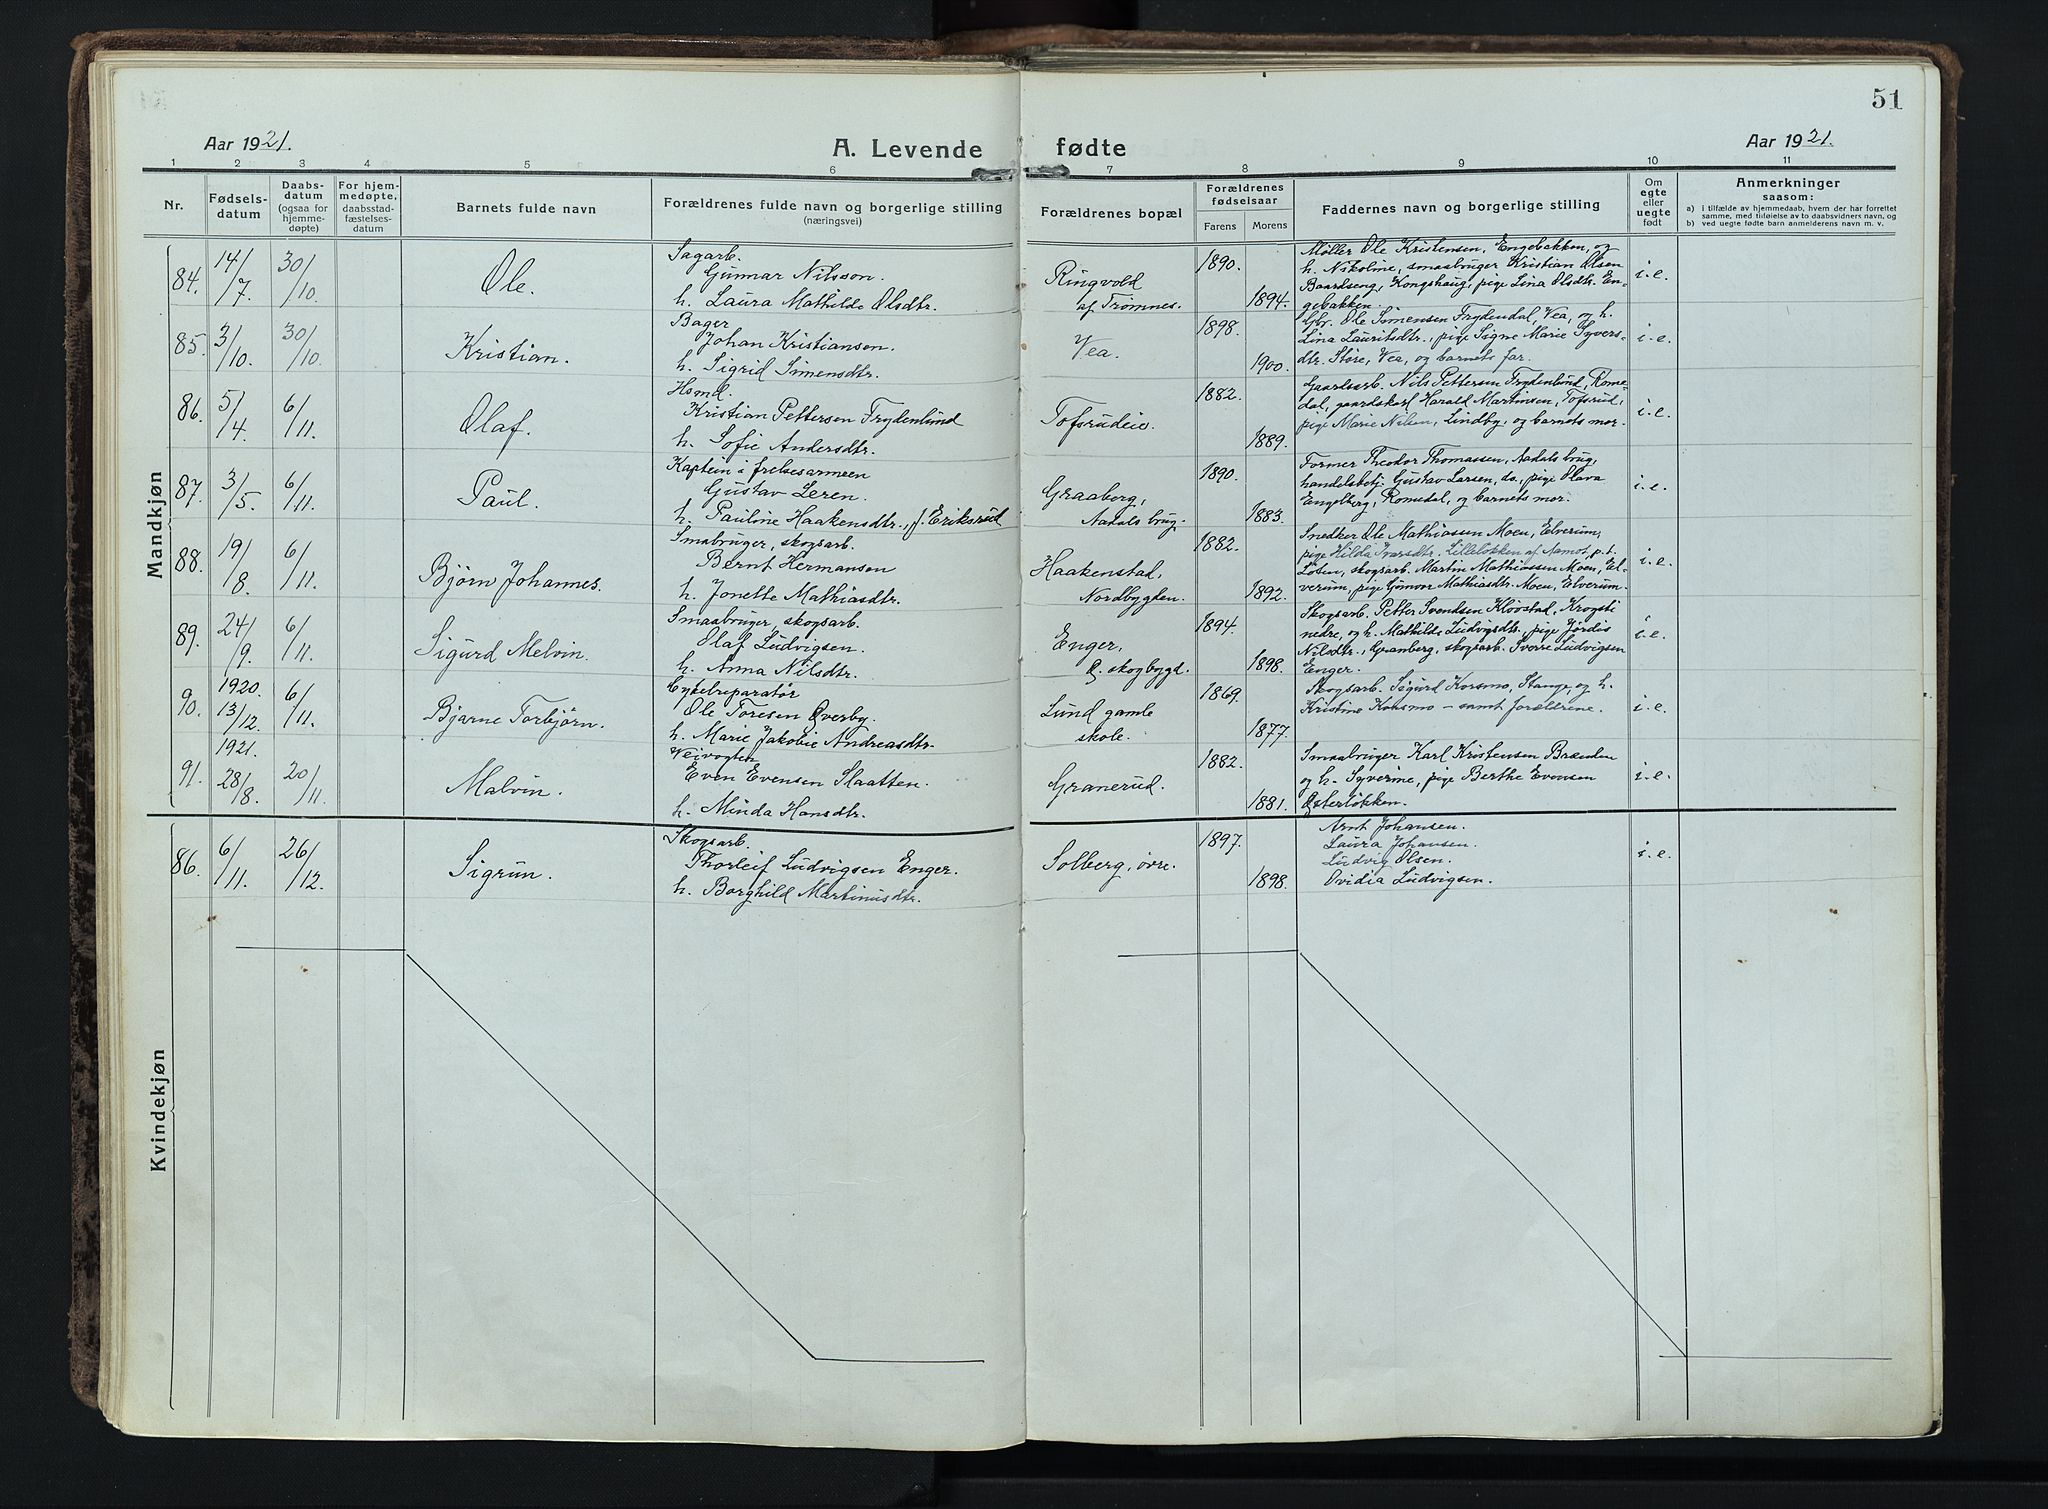 51
Aar 1921.
A. Levende fødte
Aar 1921.
1 2 3 4 5 6 7 8 9 10 11
Nr.
Fødsels-
datum
Daabs-
datum
(ogsaa for
hjemme-
døpte)
For hjem-
medøpte,
daabsstad-
fæstelses-
datum
Barnets fulde navn
Forældrenes fulde navn og borgerlige stilling
(næringsvei)
Forældrenes bopæl
Forældrenes
fødselsaar
Farens Morens
Faddernes navn og borgerlige stilling
Om
egte
eller
uegte
født
Anmerkninger
saasom:
a) i tilfælde av hjemmedaab, hvem der har forrettet
samme, med tilføielse av to daabsvidners navn, og
b) ved uegte fødte barn anmelderens navn m. v.
Mandkjøn
84. 14/7 30/10 Ole.
Sagarb.
Gunnar Nilsson.
h. Laura Mathilde Olsdtr.
Ringvold
af Trømnes.
1890.
1894.
Møller Ole Kristensen, Engebakken, og
h. Nikoline, smaabruger Kristian Olsen
Baardseng, Kongshaug, pige Lina Olsdtr. En-
gebakken.
i.e.
85. 3/10 30/10 Kristian.
Bager
Johan Kristiansen.
h. Sigrid Simensdtr.
Vea.
1898.
1900.
Gbr. Ole Simensen Frydendal, Vea, og h.
Lina Lauritsdtr., pige Signe Marie Syvers-
dtr. Støre, Vea, og barnets far.
i.e.
86. 5/4 6/11. Olaf.
Hsmd.
Kristian Pettersen Frydenlund
h. Sofie Andersdtr.
Tofsrudeie.
1882.
1889.
Gaardsarb. Nils Pettersen Frydenlund, Rome-
dal, gaardskarl Harald Martinsen, Tofsrud,
pige Marie Nilsen, Lindby, og barnets mor.
i.e.
87. 3/5 6/11. Paul.
Kaptein i frelsesarmeen
Gustav Leren.
h. Pauline Haakensdtr., f. Eriksrud
Graaberg,
Aadals brug.
1890.
1883.
Former Theodor Thomassen, Aadals brug,
handelsbetj. Gustav Larsen, do., pige Olava
Engelberg, Romedal, og barnets mor.
i.e.
88. 19/8 6/11. Bjørn Johannes.
Smabruger, skogsarb.
Bernt Hermansen
h. Jonette Mathiasdtr.
Haakenstad,
Nordbygden.
1882.
1892.
Snedker Ole Mathiassen Moen, Elverum,
pige Hilda Ivarsdtr. Lilleløkken af Aamot, p.t.
Løten, skogsarb. Martin Mathiassen Moen, El-
verum, pige Gunvor Mathiasdtr. Moen, Elverum.
i.e.
89. 24/9 6/11. Sigurd Melvin.
Smaabruger, skogsarb.
Olaf Ludvigsen.
h. Anna Nilsdtr.
Enger,
Ø. skogbygd.
1894.
1898.
Skogsarb. Petter Svendsen Kløvstad, Krogsti
nedre, og h. Mathilde Ludvigsdtr., pige Jordis
Nilsdtr., Granberg, skogsarb. Sverre Ludvigsen
Enger.
i.e.
90. 1920. 13/12. 6/11. Bjarne Torbjørn.
Cykelreparatør
Ole Toresen Øverby.
h. Marie Jakobie Andreasdtr.
Lund gamle
skole.
1869.
1877.
Skogsarb. Sigurd Korsmo, Stange, og h.
Kristine Korsmo – samt forældrene.
i.e.
91. 1921. 28/8. 20/11. Malvin.
Veivogter
Even Evensen Slaatten.
h. Minda Hansdtr.
Granerud.
1882.
1881.
Smaabruger Karl Kristensen Brænden
og h. Syverine, pige Berthe Evensen
Østerløkken.
i.e.
Kvindekjøn
86. 6/11. 26/12. Sigrun.
Skogsarb.
Thorleif Ludvigsen Enger.
h. Borghild Martinusdtr.
Solberg, øvre.
1897.
1898.
Arnt Johansen.
Laura Johansen.
Ludvig Olsen.
Ovidia Ludvigsen.
i.e.